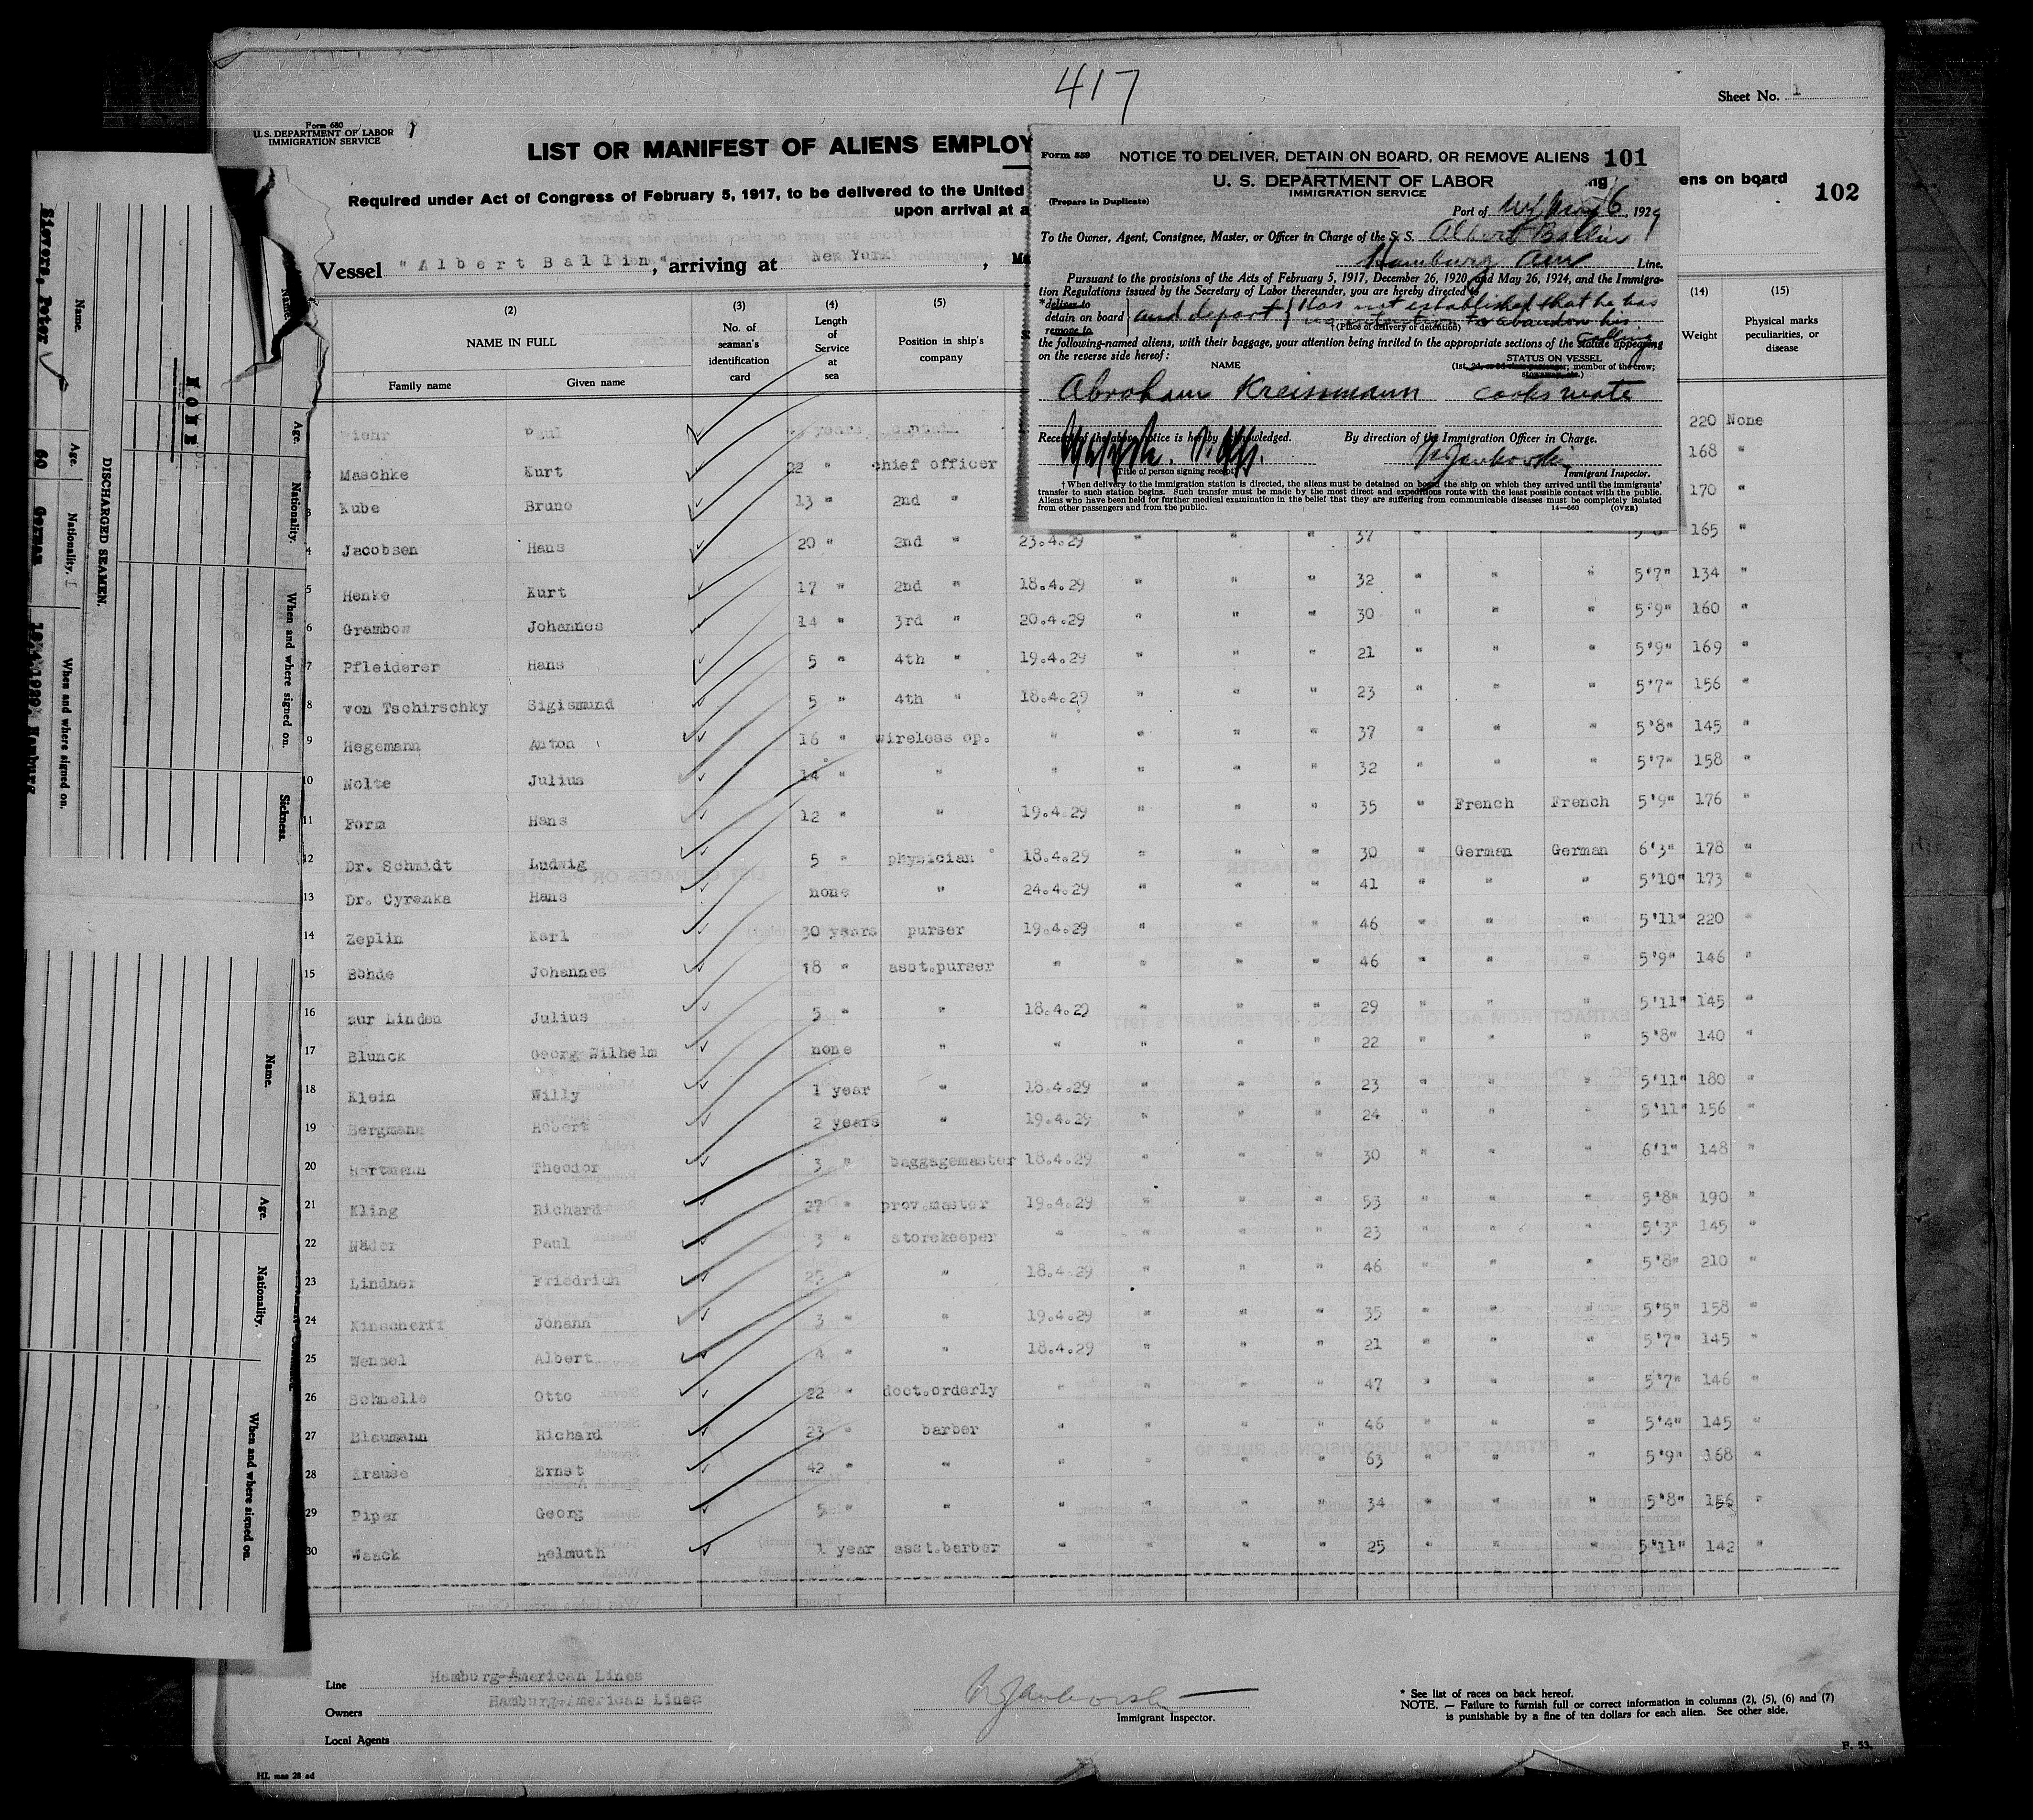 417
Sheet No. 1
Form 680
U. S. DEPARTMENT OF LABOR
IMMIGRATION SERVICE
LIST OR MANIFEST OF ALIENS EMPLOY
Required under Act of Congress of February 5, 1917, to be delivered to the United
ens on board
102
upon arrival at a
Vessel "Albert Ballin", arriving at New York,
Form 559 NOTICE TO DELIVER, DETAIN ON BOARD, OR REMOVE ALIENS 101
U. S. DEPARTMENT OF LABOR
IMMIGRATION SERVICE
(Prepare in Duplicate)
Port of NY May 6, 1929
To the Owner, Agent, Consignee, Master, or Officer in Charge of the S. S. Albert Ballin
Hamburg Am Line.
Pursuant to the provisions of the Acts of February 5, 1917, December 26, 1920, and May 26, 1924, and the Immigra-
tion Regulations issued by the Secretary of Labor thereunder, you are hereby directed to
*deliver to
detain on board and deport Has not established that he has
remove to
† (Place of delivery or detention) to abandon his
calling
the following-named aliens, with their baggage, your attention being invited to the appropriate sections of the statute appearing
on the reverse side hereof:
NAME
STATUS ON VESSEL
(1st, 2d, or 3d class passenger; member of the crew;
stowaway, etc.)
Abraham Kreissmann cooks mate
Receipt of the above notice is hereby acknowledged. By direction of the Immigration Officer in Charge.
(Title of person signing receipt)
Immigrant Inspector.
† When delivery to the immigration station is directed, the aliens must be detained on board the ship on which they arrived until the immigrants'
transfer to such station begins. Such transfer must be made by the most direct and expeditious route with the least possible contact with the public.
Aliens who have been held for further medical examination in the belief that they are suffering from communicable diseases must be completely isolated
from other passengers and from the public. 14—660 (OVER)
(2) (3) (4) (5) (14) (15)
NAME IN FULL No. of seaman's identification card Length of Service at sea Position in ship's company Weight Physical marks peculiarities, or disease
Family name Given name
Wiehr Paul years captain 220 None
2 Maschke Kurt 22 " chief officer 168 "
3 Kube Bruno 13 " 2nd " 170 "
4 Jacobsen Hans 20 " 2nd " 23.4.29 " " " 37 " " " 165 "
5 Henke Kurt 17 " 2nd " 18.4.29 " " " 32 " " " 5'7" 134 "
6 Grambow Johannes 14 " 3rd " 20.4.29 " " " 30 " " " 5'9" 160 "
7 Pfleiderer Hans 5 " 4th " 19.4.29 " " " 21 " " " 5'9" 169 "
8 von Tschirschky Sigismund 5 " 4th " 18.4.29 " " " 23 " " " 5'7" 156 "
9 Hegemann Anton 16 " wireless op. " " " " 37 " " " 5'8" 145 "
10 Nolte Julius 14 " " " " " " 32 " " " 5'7" 158 "
11 Form Hans 12 " " 19.4.29 " " " 35 " French French 5'9" 176 "
12 Dr. Schmidt Ludwig 5 " physician 18.4.29 " " " 30 " German German 6'3" 178 "
13 Dr. Cyrenka Hans none " 24.4.29 " " " 41 " " " 5'10" 173 "
14 Zeplin Karl 30 years purser 19.4.29 " " " 46 " " " 5'11" 220 "
15 Böhde Johannes 18 " asst.purser " " " " 46 " " " 5'9" 146 "
16 zur Linden Julius 5 " " 18.4.29 " " " 29 " " " 5'11" 145 "
17 Blunck Georg Wilhelm none " " " " " 22 " " " 5'8" 140 "
18 Klein Willy 1 year " 18.4.29 " " " 23 " " " 5'11" 180 "
19 Bergmann Robert 2 years " 19.4.29 " " " 24 " " " 5'11" 156 "
20 Hartmann Theodor 3 " baggagemaster 18.4.29 " " " 30 " " " 6'1" 148 "
21 Kling Richard 27 " prov.master 19.4.29 " " " 53 " " " 5'8" 190 "
22 Mäder Paul 3 " storekeeper " " " " 23 " " " 5'3" 145 "
23 Lindner Friedrich 25 " " 18.4.29 " " " 46 " " " 5'8" 210 "
24 Kinscherff Johann 3 " " 19.4.29 " " " 35 " " " 5'5" 158 "
25 Wenzel Albert 4 " " 18.4.29 " " " 21 " " " 5'7" 145 "
26 Schnelle Otto 22 " doct.orderly " " " " 47 " " " 5'7" 146 "
27 Blaumann Richard 23 " barber " " " " 46 " " " 5'4" 145 "
28 Krause Ernst 42 " " " " " " 63 " " " 5'9" 168 "
29 Piper Georg 5 " " " " " " 34 " " " 5'8" 156 "
30 Waack Helmuth 1 year asst.barber " " " " 25 " " " 5'11" 142 "
Line Hamburg-American Lines
Owners Hamburg-American Lines
Local Agents
Immigrant Inspector.
* See list of races on back hereof.
NOTE. — Failure to furnish full or correct information in columns (2), (5), (6) and (7)
is punishable by a fine of ten dollars for each alien. See other side.
F. 53.
HL mas 28 ad
Name. Age. Nationality. When and where signed on.
Sievers, Peter 60 German Hamburg
DISCHARGED SEAMEN.
NONE
Name. Age. Nationality. When and where signed on. Sickness.
Name. Age. Nationality. When and where signed on.